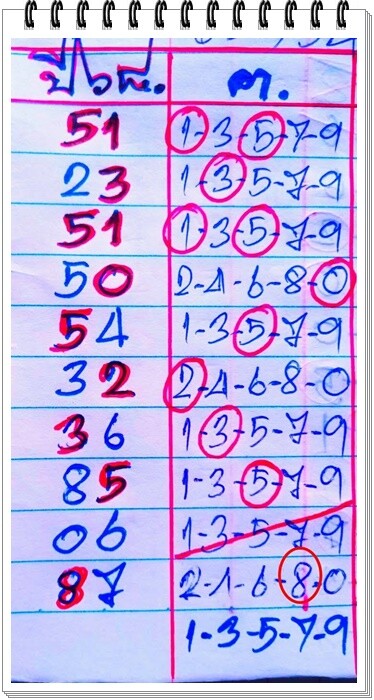 ปีใหม่. ต.
51 1-3-5-7-9
23 1-3-5-7-9
51 1-3-5-7-9
50 2-4-6-8-0
54 1-3-5-7-9
32 2-4-6-8-0
36 1-3-5-7-9
85 1-3-5-7-9
06 1-3-5-7-9
87 2-4-6-8-0
1-3-5-7-9